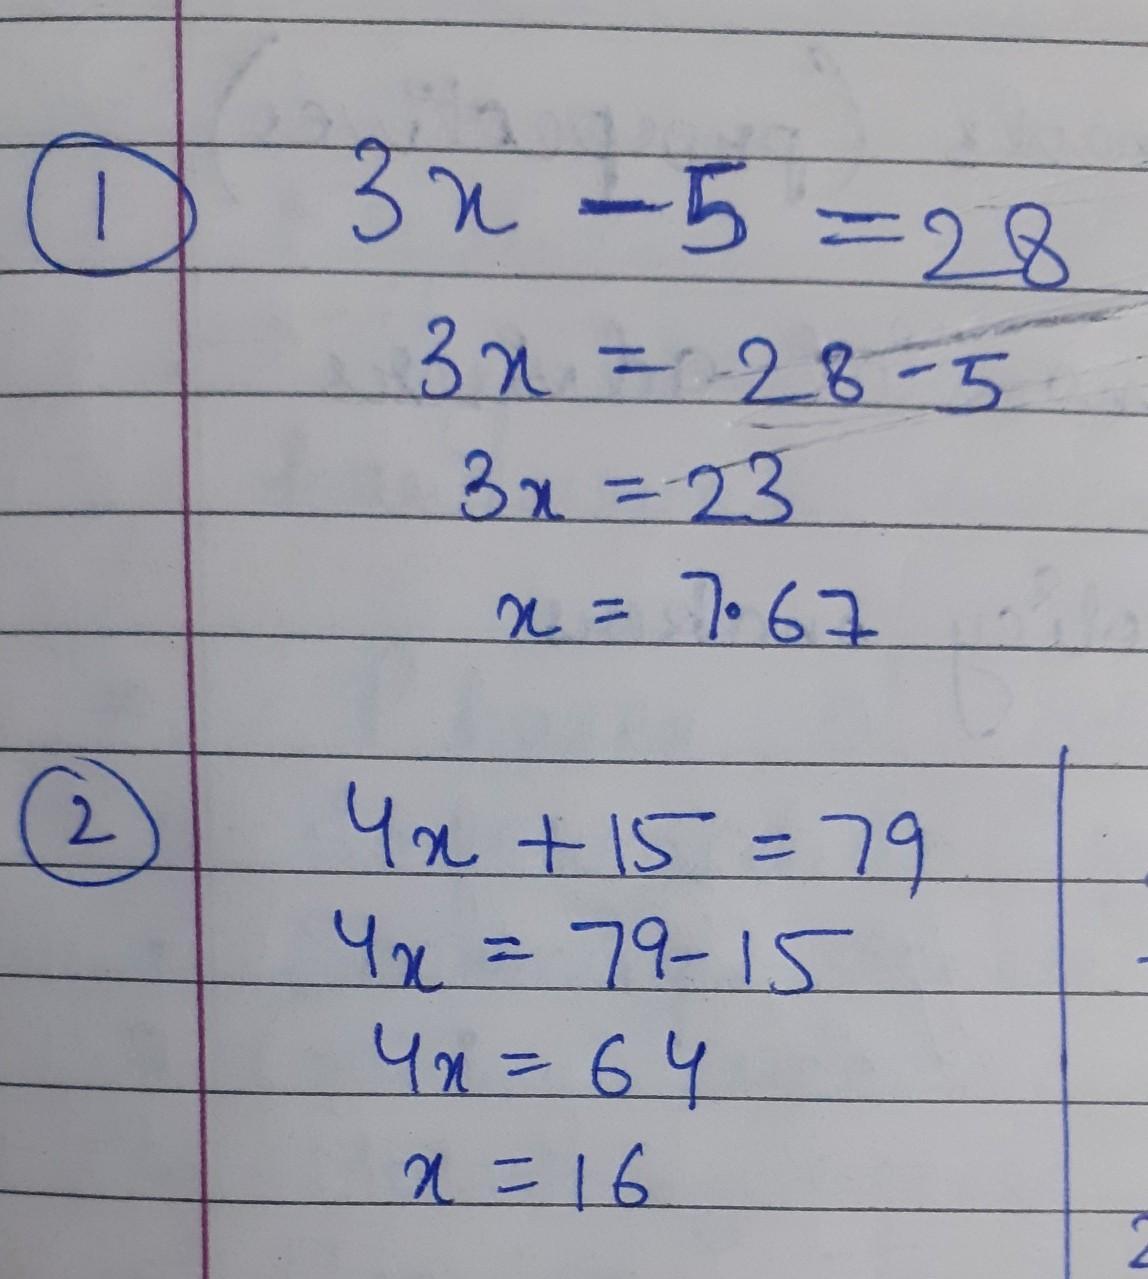 1 3x - 5 = 28
3x = 28 - 5
3x = 23
x = 7.67
2 4x + 15 = 79
4x = 79 - 15
4x = 64
x = 16